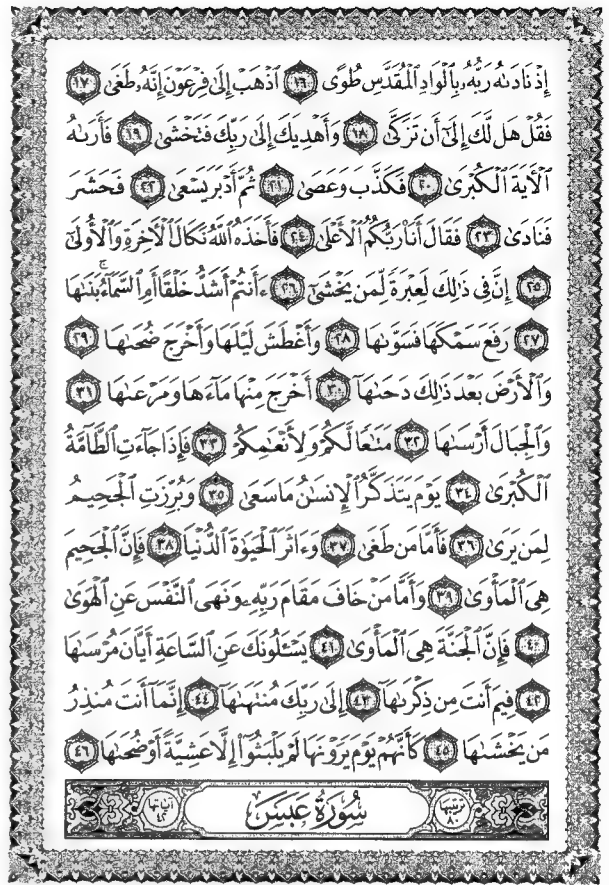 إِذْ نَادَىٰهُ رَبُّهُۥ بِٱلْوَادِ ٱلْمُقَدَّسِ طُوًى ١٦ ٱذْهَبْ إِلَىٰ فِرْعَوْنَ إِنَّهُۥ طَغَىٰ ١٧
فَقُلْ هَل لَّكَ إِلَىٰٓ أَن تَزَكَّىٰ ١٨ وَأَهْدِيَكَ إِلَىٰ رَبِّكَ فَتَخْشَىٰ ١٩ فَأَرَىٰهُ
ٱلْءَايَةَ ٱلْكُبْرَىٰ ٢٠ فَكَذَّبَ وَعَصَىٰ ٢١ ثُمَّ أَدْبَرَ يَسْعَىٰ ٢٢ فَحَشَرَ
فَنَادَىٰ ٢٣ فَقَالَ أَنَا۠ رَبُّكُمُ ٱلْأَعْلَىٰ ٢٤ فَأَخَذَهُ ٱللَّهُ نَكَالَ ٱلْءَاخِرَةِ وَٱلْأُولَىٰٓ
٢٥ إِنَّ فِى ذَٰلِكَ لَعِبْرَةً لِّمَن يَخْشَىٰٓ ٢٦ ءَأَنتُمْ أَشَدُّ خَلْقًا أَمِ ٱلسَّمَآءُ ۚ بَنَىٰهَا
٢٧ رَفَعَ سَمْكَهَا فَسَوَّىٰهَا ٢٨ وَأَغْطَشَ لَيْلَهَا وَأَخْرَجَ ضُحَىٰهَا ٢٩
وَٱلْأَرْضَ بَعْدَ ذَٰلِكَ دَحَىٰهَآ ٣٠ أَخْرَجَ مِنْهَا مَآءَهَا وَمَرْعَىٰهَا ٣١
وَٱلْجِبَالَ أَرْسَىٰهَا ٣٢ مَتَٰعًا لَّكُمْ وَلِأَنْعَٰمِكُمْ ٣٣ فَإِذَا جَآءَتِ ٱلطَّآمَّةُ
ٱلْكُبْرَىٰ ٣٤ يَوْمَ يَتَذَكَّرُ ٱلْإِنسَٰنُ مَا سَعَىٰ ٣٥ وَبُرِّزَتِ ٱلْجَحِيمُ
لِمَن يَرَىٰ ٣٦ فَأَمَّا مَن طَغَىٰ ٣٧ وَءَاثَرَ ٱلْحَيَوٰةَ ٱلدُّنْيَا ٣٨ فَإِنَّ ٱلْجَحِيمَ
هِىَ ٱلْمَأْوَىٰ ٣٩ وَأَمَّا مَنْ خَافَ مَقَامَ رَبِّهِۦ وَنَهَى ٱلنَّفْسَ عَنِ ٱلْهَوَىٰ
٤٠ فَإِنَّ ٱلْجَنَّةَ هِىَ ٱلْمَأْوَىٰ ٤١ يَسْـَٔلُونَكَ عَنِ ٱلسَّاعَةِ أَيَّانَ مُرْسَىٰهَا
٤٢ فِيمَ أَنتَ مِن ذِكْرَىٰهَآ ٤٣ إِلَىٰ رَبِّكَ مُنتَهَىٰهَآ ٤٤ إِنَّمَآ أَنتَ مُنذِرُ
مَن يَخْشَىٰهَا ٤٥ كَأَنَّهُمْ يَوْمَ يَرَوْنَهَا لَمْ يَلْبَثُوٓا۟ إِلَّا عَشِيَّةً أَوْ ضُحَىٰهَا ٤٦
ترتيبها ٨٠ سُورَةُ عَبَسَ آياتها ٤٢